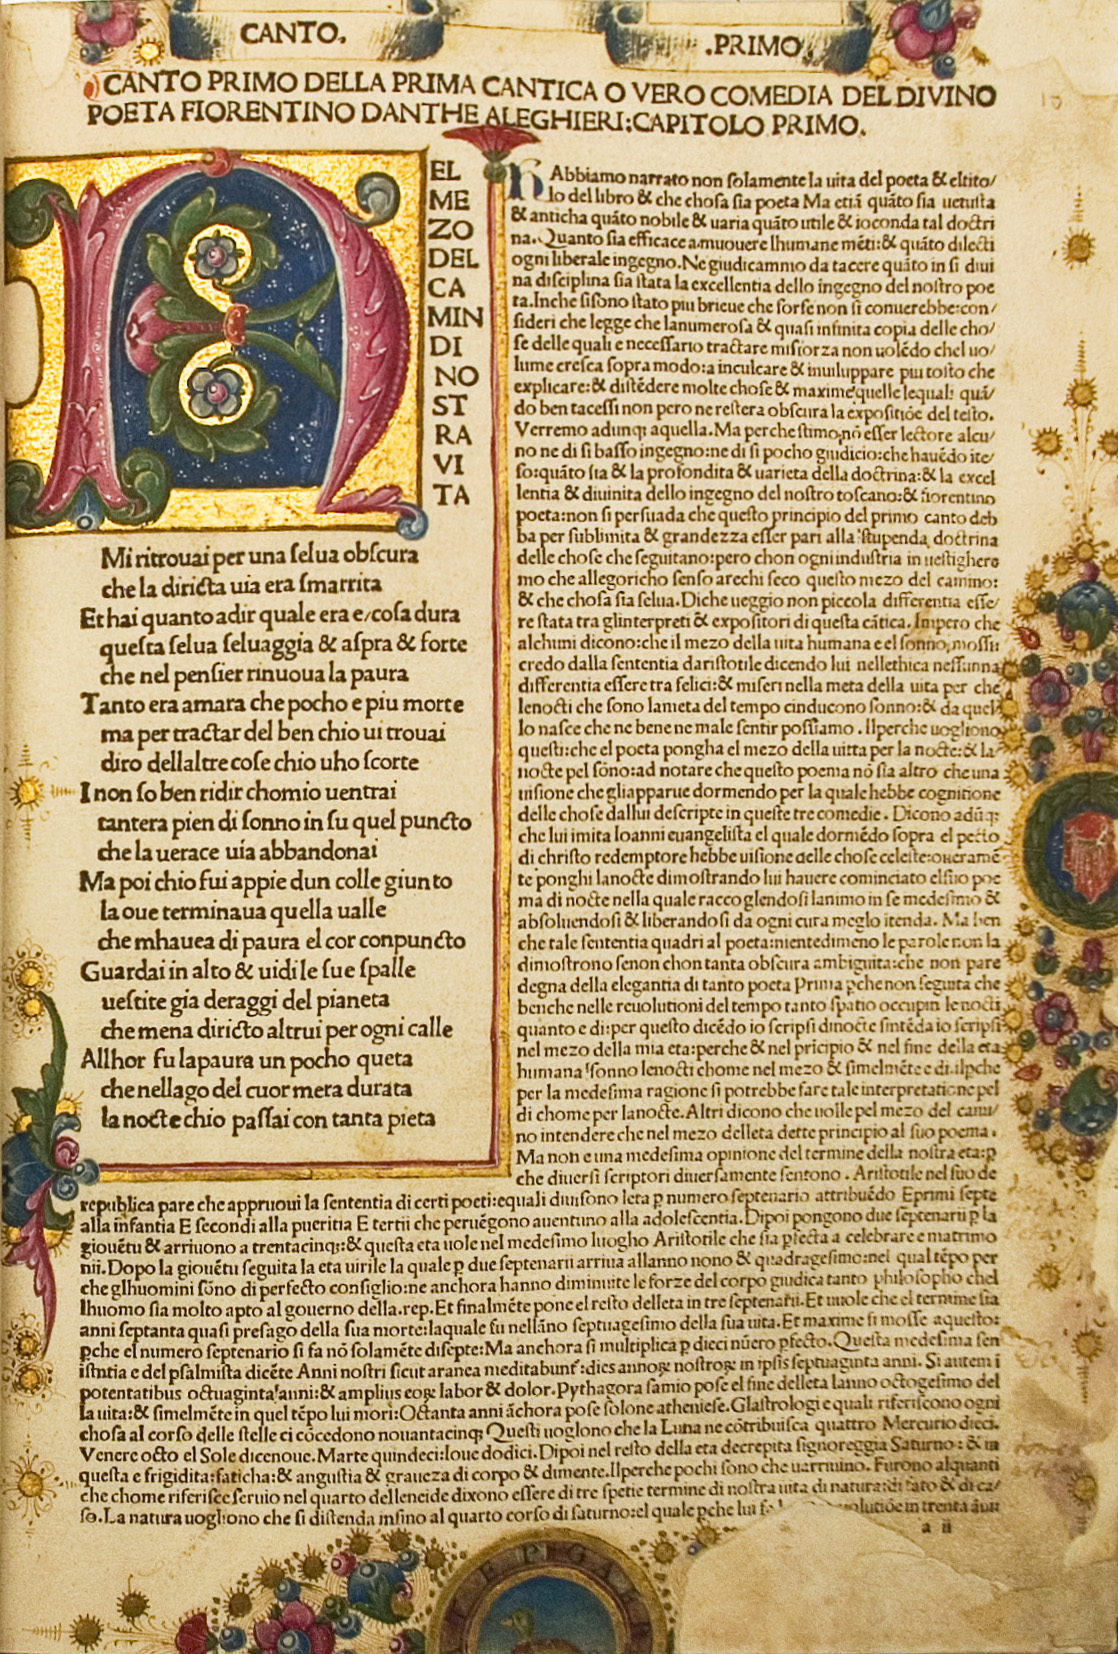 CANTO.
.PRIMO.
CANTO PRIMO DELLA PRIMA CANTICA O VERO COMEDIA DEL DIVINO
POETA FIORENTINO DANTHE ALEGHIERI:CAPITOLO PRIMO.
N
EL
ME
ZO
DEL
CA
MIN
DI
NO
ST
RA
VI
TA
Mi ritrouai per una ſelua obſcura
che la diricta uia era ſmarrita
Et hai quanto adir quale era e/coſa dura
queſta ſelua ſeluaggia & aſpra & forte
che nel penſier rinuoua la paura
Tanto era amara che pocho e piu morte
ma per tractar del ben chio ui trouai
diro dellaltre coſe chio uho ſcorte
I non ſo ben ridir chomio uentrai
tantera pien di ſonno in ſu quel puncto
che la uerace uia abbandonai
Ma poi chio fui appie dun colle giunto
la oue terminaua quella ualle
che mhauea di paura el cor conpuncto
Guardai in alto & uidi le ſue ſpalle
ueſtite gia deraggi del pianeta
che mena diricto altrui per ogni calle
Allhor fu la paura un pocho queta
che nellago del cuor mera durata
la nocte chio paſſai con tanta pieta
Abbiamo narrato non ſolamente la uita del poeta & eltito/
lo del libro & che choſa ſia poeta Ma etiã quãto ſia uetuſta
& anticha quãto nobile & uaria quãto utile & ioconda tal doctri
na. Quanto ſia efficace a muouere lhumane mẽti:& quãto dilecti
ogni liberale ingegno. Ne giudicammo da tacere quãto in ſi diui
na diſciplina ſia ſtata la excellentia dello ingegno del noſtro poe
ta. Inche ſi ſono ſtato piu brieue che forſe non ſi conuerebbe:con/
ſideri che legge che la numeroſa & quaſi infinita copia delle cho/
ſe delle quali e neceſſario tractare mi ſforza non uolẽdo chel uo/
lume creſca ſopra modo:a inculcare & inuiluppare piu toſto che
explicare:& diſtẽdere molte choſe & maxime quelle lequali quã/
do ben taceſſi non pero ne reſtera obſcura la expoſitiõe del teſto.
Verremo adunq; aquella. Ma perche ſtimo, nõ eſſer lectore alcu/
no ne di ſi baſſo ingegno:ne di ſi pocho giudicio:che hauẽdo ite/
ſo:quãto ſia & la profondita & uarieta della doctrina:& la excel
lentia & diuinita dello ingegno del noſtro toſcano:& fiorentino
poeta:non ſi perſuada che queſto principio del primo canto deb
ba per ſublimita & grandezza eſſer pari alla ſtupenda doctrina
delle choſe che ſeguitano:pero chon ogni induſtria in ueſtighere
mo che allegoricho ſenſo arechi ſeco queſto mezo del camino:
& che choſa ſia ſelua. Diche ueggio non piccola differentia eſſe/
re ſtata tra glinterpreti & expoſitori di queſta cãtica. Impero che
alchuni dicono:che il mezo della uita humana e el ſonno, moſſi
credo dalla ſententia dariſtotile dicendo lui nellethica neſſunna
differentia eſſere tra felici:& miſeri nella meta della uita per che
lenocti che ſono lameta del tempo cinducono ſonno:& da quel
lo naſce che ne bene ne male ſentir poſſiamo. Ilperche uogliono
queſti:che el poeta pongha el mezo della uitta per la nocte:& la
nocte pel ſõno:ad notare che queſto poema nõ ſia altro che una
uiſione che gliapparue dormendo per la quale hebbe cognitione
delle choſe dallui deſcripte in queſte tre comedie. Dicono adũq;
che lui imita Ioanni euangeliſta el quale dormẽdo ſopra el pecto
di chriſto redemptore hebbe uiſione delle choſe celeſte:oueramẽ
te ponghi lanocte dimoſtrando lui hauere cominciato elſuo poe
ma di nocte nella quale raccoglendoſi lanimo in ſe medeſimo &
abſoluendoſi & liberandoſi da ogni cura meglo itenda. Ma ben
che tale ſententia quadri al poeta:nientedimeno le parole non la
dimoſtrono ſenon chon tanta obſcura ambiguita:che non pare
degna della elegantia di tanto poeta Prima pche non ſeguita che
benche nelle reuolutioni del tempo tanto ſpatio occupin le nocti
quanto e di:per queſto dicẽdo io ſcripſi dinocte ſintẽda io ſcripſi
nel mezo della mia eta:perche & nel pricipio & nel fine della eta
humana ſonno lenocti chome nel mezo & ſimelmẽte e di. ilpche
per la medeſima ragione ſi potrebbe fare tale interpretatione pel
di chome per lanocte. Altri dicono che uolle pel mezo del cami/
no intendere che nel mezo delleta dette principio al ſuo poema.
Ma non e una medeſima opinione del termine della noſtra eta:p
che diuerſi ſcriptori diuerſamente ſentono. Ariſtotile nel ſuo de
republica pare che appruoui la ſententia di certi poeti:equali diuiſono leta p numero ſeptenario attribuẽdo E primi ſepte
alla infantia E ſecondi alla pueritia E tertii che peruẽgono auentuno alla adoleſcentia. Dipoi pongono due ſeptenarii p la
giouẽtu & arriuono a trentacinq;:& queſta eta uole nel medeſimo luogho Ariſtotile che ſia pfecta a celebrare e matrimo
nii. Dopo la giouẽtu ſeguita la eta uirile la quale p due ſeptenarii arriua allanno nono & quadrageſimo:nel qual tẽpo per
che glhuomini ſõno di perfecto conſiglio:ne anchora hanno diminuite le forze del corpo giudica tanto philoſopho chel
lhuomo ſia molto apto al gouerno della.rep. Et finalmẽte pone el reſto delleta in tre ſeptenarii. Et uuole che el termine ſia
anni ſeptanta quaſi preſago della ſua morte:laquale fu nellãno ſeptuageſimo della ſua uita. Et maxime ſi moſſe a queſto:
pche el numero ſeptenario ſi fa nõ ſolamẽte diſepte:Ma anchora ſi multiplica p dieci nũero pfecto. Queſta medeſima ſen
iſtntia e del pſalmiſta dicẽte Anni noſtri ſicut aranea meditabunt:dies annoꝝ noſtroꝝ in ipſis ſeptuaginta anni. Si autem i
potentatibus octuaginta anni:& amplius eoꝝ labor & dolor. Pythagora ſamio poſe el fine delleta lanno octogeſimo del
la uita:& ſimelmẽte in quel tẽpo lui mori:Octanta anni ãchora poſe ſolone athenieſe. Glaſtrologi e quali riferiſcono ogni
choſa al corſo delle ſtelle ci cõcedono nouantacinq; Queſti uoglono che la Luna ne cõtribuiſca quattro Mercurio dieci.
Venere octo el Sole dicenoue. Marte quindeci:Ioue dodici. Dipoi nel reſto della eta decrepita ſignoreggia Saturno:& in
queſta e frigidita:faticha:& anguſtia & graueza di corpo & dimente. Ilperche pochi ſono che uarriuino. Furono alquanti
che chome riferiſce ſeruio nel quarto delleneide dixono eſſere di tre ſpetie termine di noſtra uita di natura:di fato & di ca/
ſo. La natura uogliono che ſi diſtenda inſino al quarto corſo di ſaturno:el quale pche lui olutiõe in trenta ãni
a ii